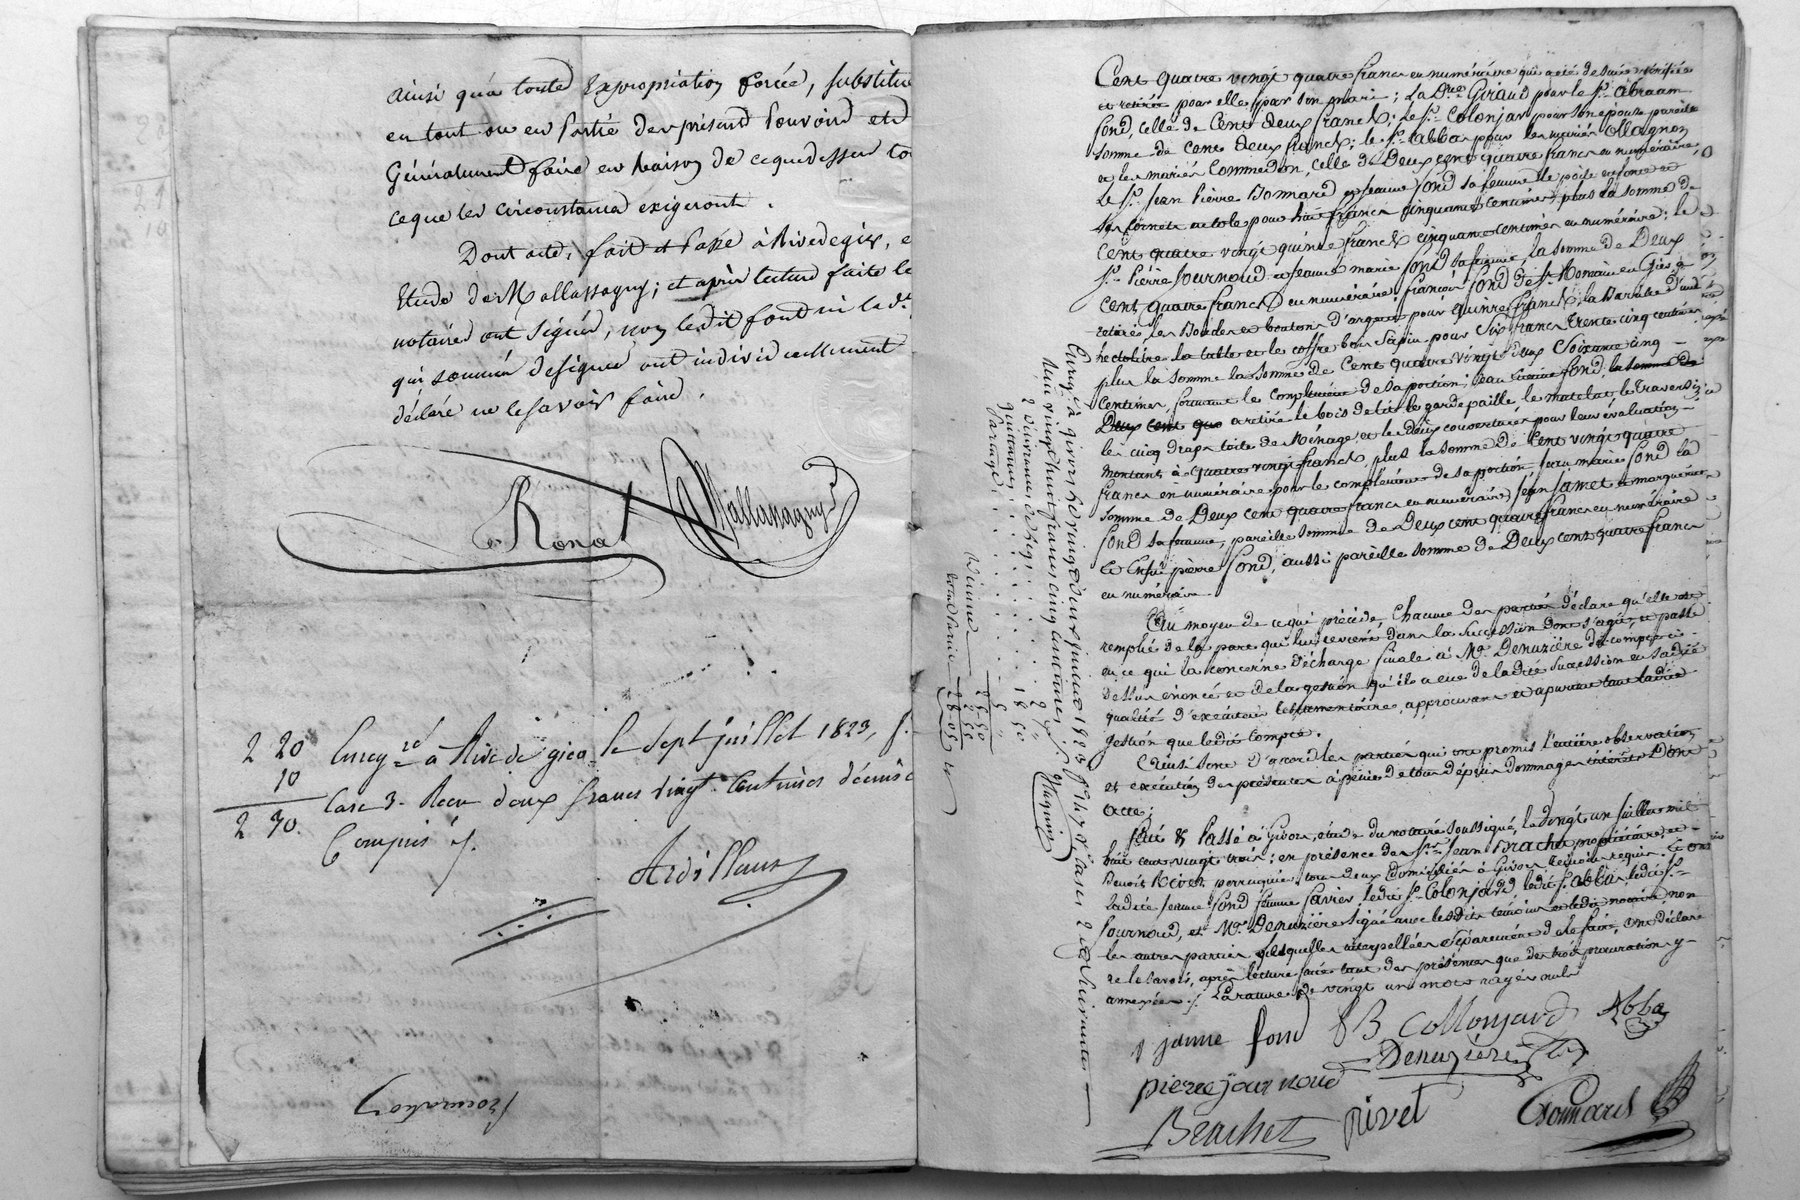 ainsi qu'a toute Expropriation forcée, substitue
en tout ou en Partie des présend Pouvoird etd
Généralement faire en Raison de ceque dessus to
ceque les circonstances exigeront.
Dont acte, fait et Passé à Rivedegier, e
Etude de M Mallassagny; et après lecture faite le
notaire ont signés, non ledit fond ni la dt
qui sommés designer ont individuellement
déclaré ne le savoir faire.
Ronat Mallassagny
2 20
10
2 30.
Enregred à Rive de gier le sept juillet 1823, f.
Case 3. Recu deux francs vingt Centimes décime
Compris
Ardillaux
Procuration
Enregé à givors le vingt deux juillet 1823 fo 47 Vo Cases 2 et suivantes
Reçu vingt huit francs cinq centimes,
Cent quatre vingt quatre francs en numéraire qui a été de suite vérifiée
et retirée pour elles par son mari; La De Giraud pour le Sr abraam
fond, celle de Cent deux francs; le Sr Colonjard pour son épouse pareille
somme de cent deux francs; le Sr abba pour les mariés Ollagnon
et les mariés Commendon, celle de Deux cent quatre francs en numéraire;
Le Sr Jean Pierre Bonnard et jeanne fond sa femme le poile en fonte et
ses Cornets en tole pour huit francs cinquante centimes plus la somme de
cent quatre vingt quinze francs cinquante centimes en numéraire; le
Sr Pierre Journoud et jeanne marie fond sa femme, la somme de Deux
cent quatre francs en numéraire; françois fond de St Romain en Gier a
retirés les Boucles et boutons d'argent pour quinze francs, la Barrile d'un
hectolitre la table et le coffre bois Sapin pour Six francs trente cinq centimes
plus la somme la somme de Cent quatre vingt deux Soixante cinq
Centimes, formant le complément de sa portion; fond, la somme de
Deux cent qua a retiré le bois de lit le garde paille le matelat le traversin
les cinq draps toile de Ménage et les deux couvertures pour leur évaluation
montant à quatre vingt francs, plus la somme de Cent vingt quatre
francs en numéraire pour le complément de sa portion; jean marie fond la
somme de Deux cent quatre francs en numéraire; jean Jamet et marguerite
fond sa femme, pareille somme de Deux cent quatre francs en numéraire
Et Enfin pierre fond, aussi pareille somme de Deux cent quatre francs
en numéraire.
Au moyen de ce qui précède, Chacune des parties déclare qu'elle est
remplie de la part qui lui revient dans la Succession dont s'agit, et passe
en ce qui la concerne décharge finale à Mr Denuzière du compte ci
dessus énoncé et de la gestion qu'il a eue de la dite succession en sa dite
qualité d'exécuteur testamentaire, approuvant et apurant tant la dite
gestion que ledit compte.
Ainsi sont d'accord les parties qui ont promis l'entière observation
et exécution des présentes à peine de tous dépens dommages intérêts Dont
Acte;
Fait & Passé à Givors, étude du notaire soussigné, le vingt un juillet mil
huit cent vingt trois; en présence des Srs Jean Brachet propriétaire, et
Benoit Rivet perruquier, tous deux domiciliés à Givors temoins requis. Et ont
ladite jeanne fond femme favier, ledit Sr Colonjard, ledit Sr abba, ledit Sr
Journoud, et Mr Denuzière signé avec lesdits témoins et ledit notaire, non
les autres parties, lesquelles interpellées séparément de le faire, ont déclaré
ne le savoir, après lecture faite tant des présentes que des trois procurations y
annexées ./. La rature de vingt un mots rayés nuls
janne fond JB Collonjard Abba
Denuzière
pierre journoud
Brachet rivet Bonnard